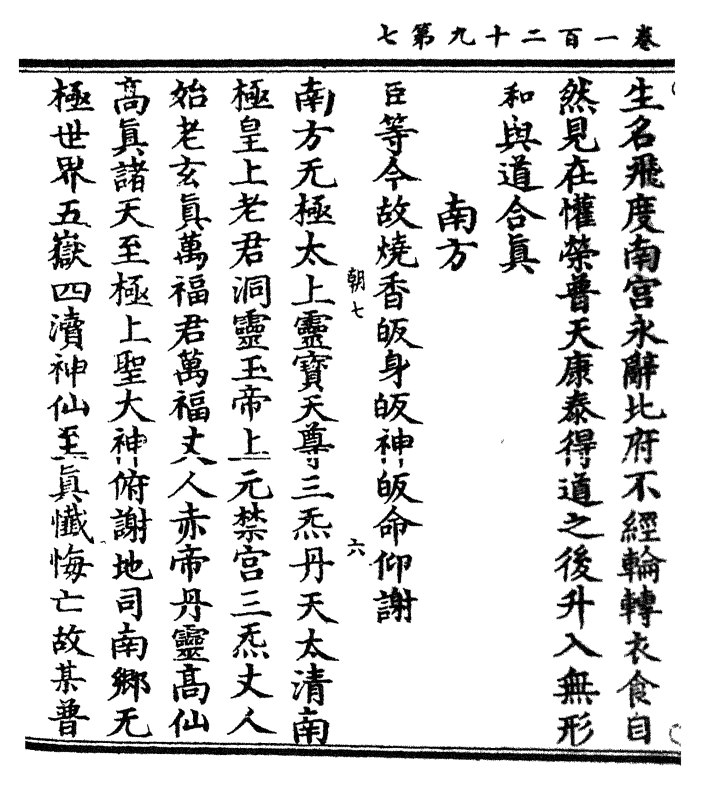 卷一百二十九第七
生名飛度南宮永辭北府不經輪轉衣食自
然見在懽榮普天康泰得道之後升入無形
和與道合眞
南方
臣等今故燒香皈身皈神皈命仰謝
朝七 六
南方无極太上靈寶天尊三炁丹天太清南
極皇上老君洞靈玉帝上元禁宮三炁丈人
始老玄眞萬福君萬福丈人赤帝丹靈高仙
高眞諸天至極上聖大神俯謝地司南鄉无
極世界五嶽四瀆神仙至眞懺悔亡故某普